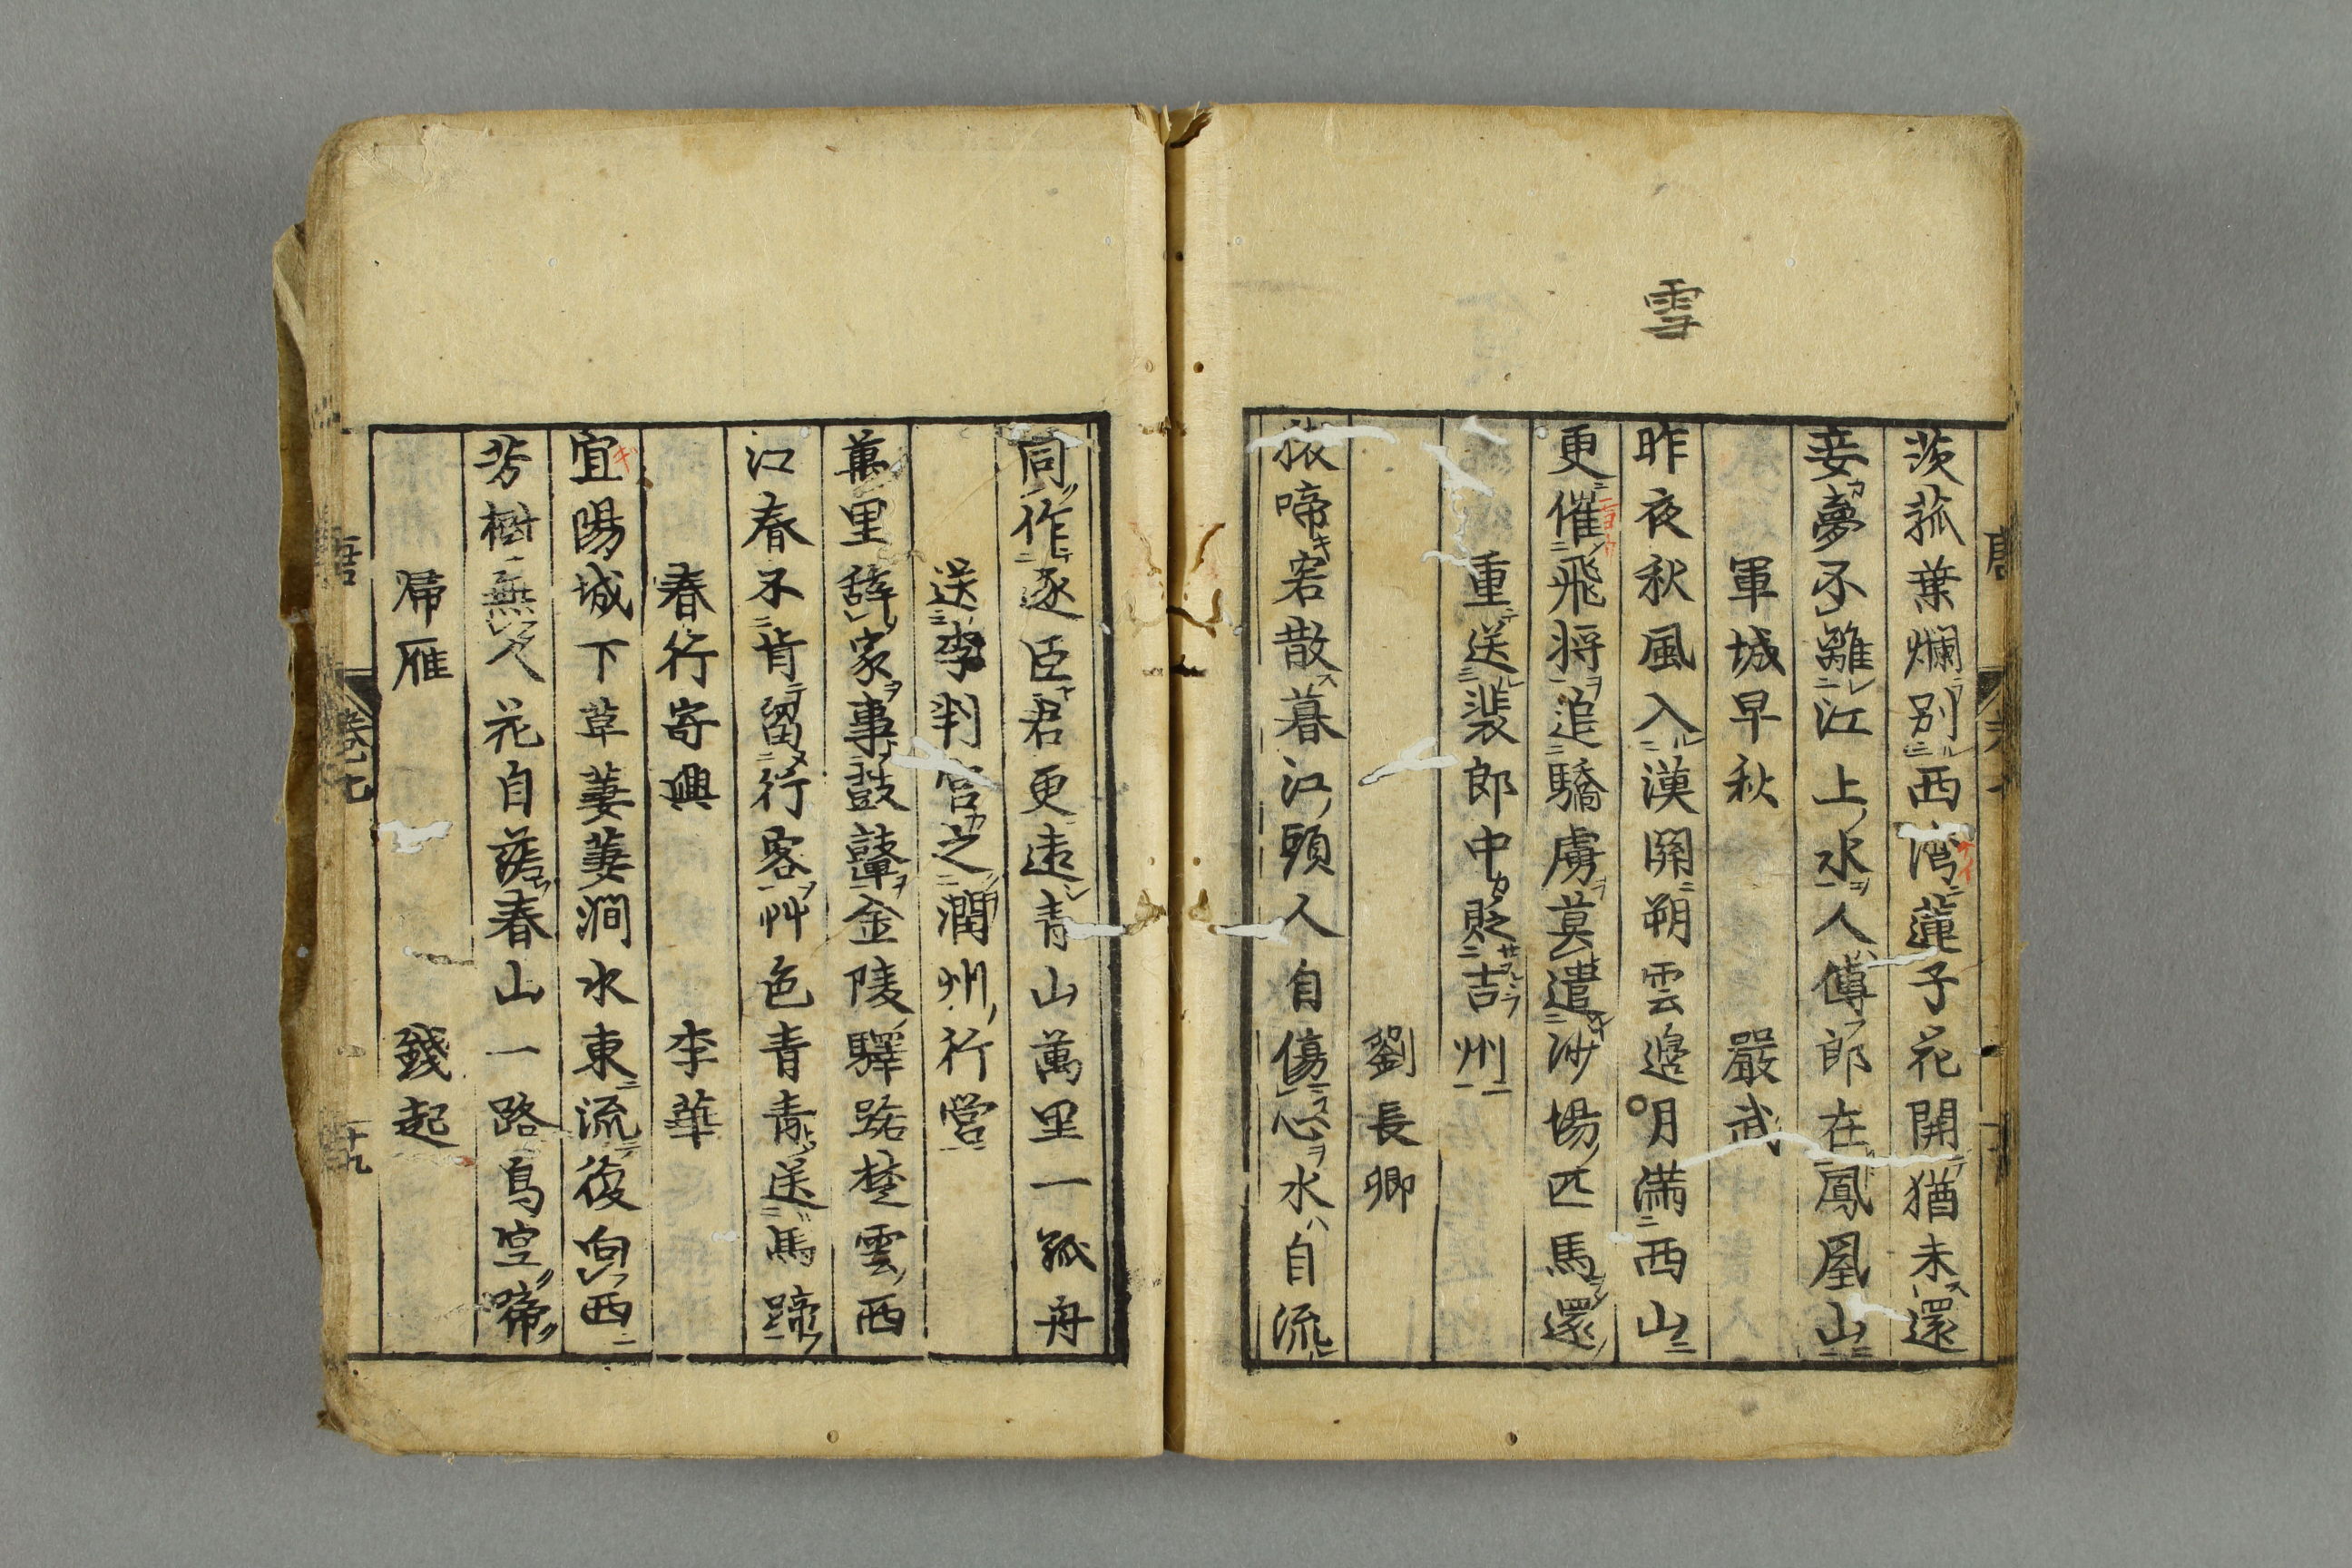 雪
茨菰葉爛別西湾蓮子花開猶未還
妾夢不離江上水人傳郎在鳳凰山
軍城早秋 嚴武
昨夜秋風入漢関朔雲邉月滿西山
更催飛将追驕虜莫遣沙場匹馬還
重送裴郎中貶吉州
劉長卿
猿啼客散暮江頭人自傷心水自流
同作逐臣君更遠青山萬里一孤舟
送李判官之潤州行營
萬里辞家事鼓鼙金陵驛路楚雲西
江春不肯留行客艸色青青送馬蹄
春行寄興 李華
宜陽城下草萋萋澗水東流復向西
芳樹無人花自落春山一路鳥空啼
帰雁 錢起